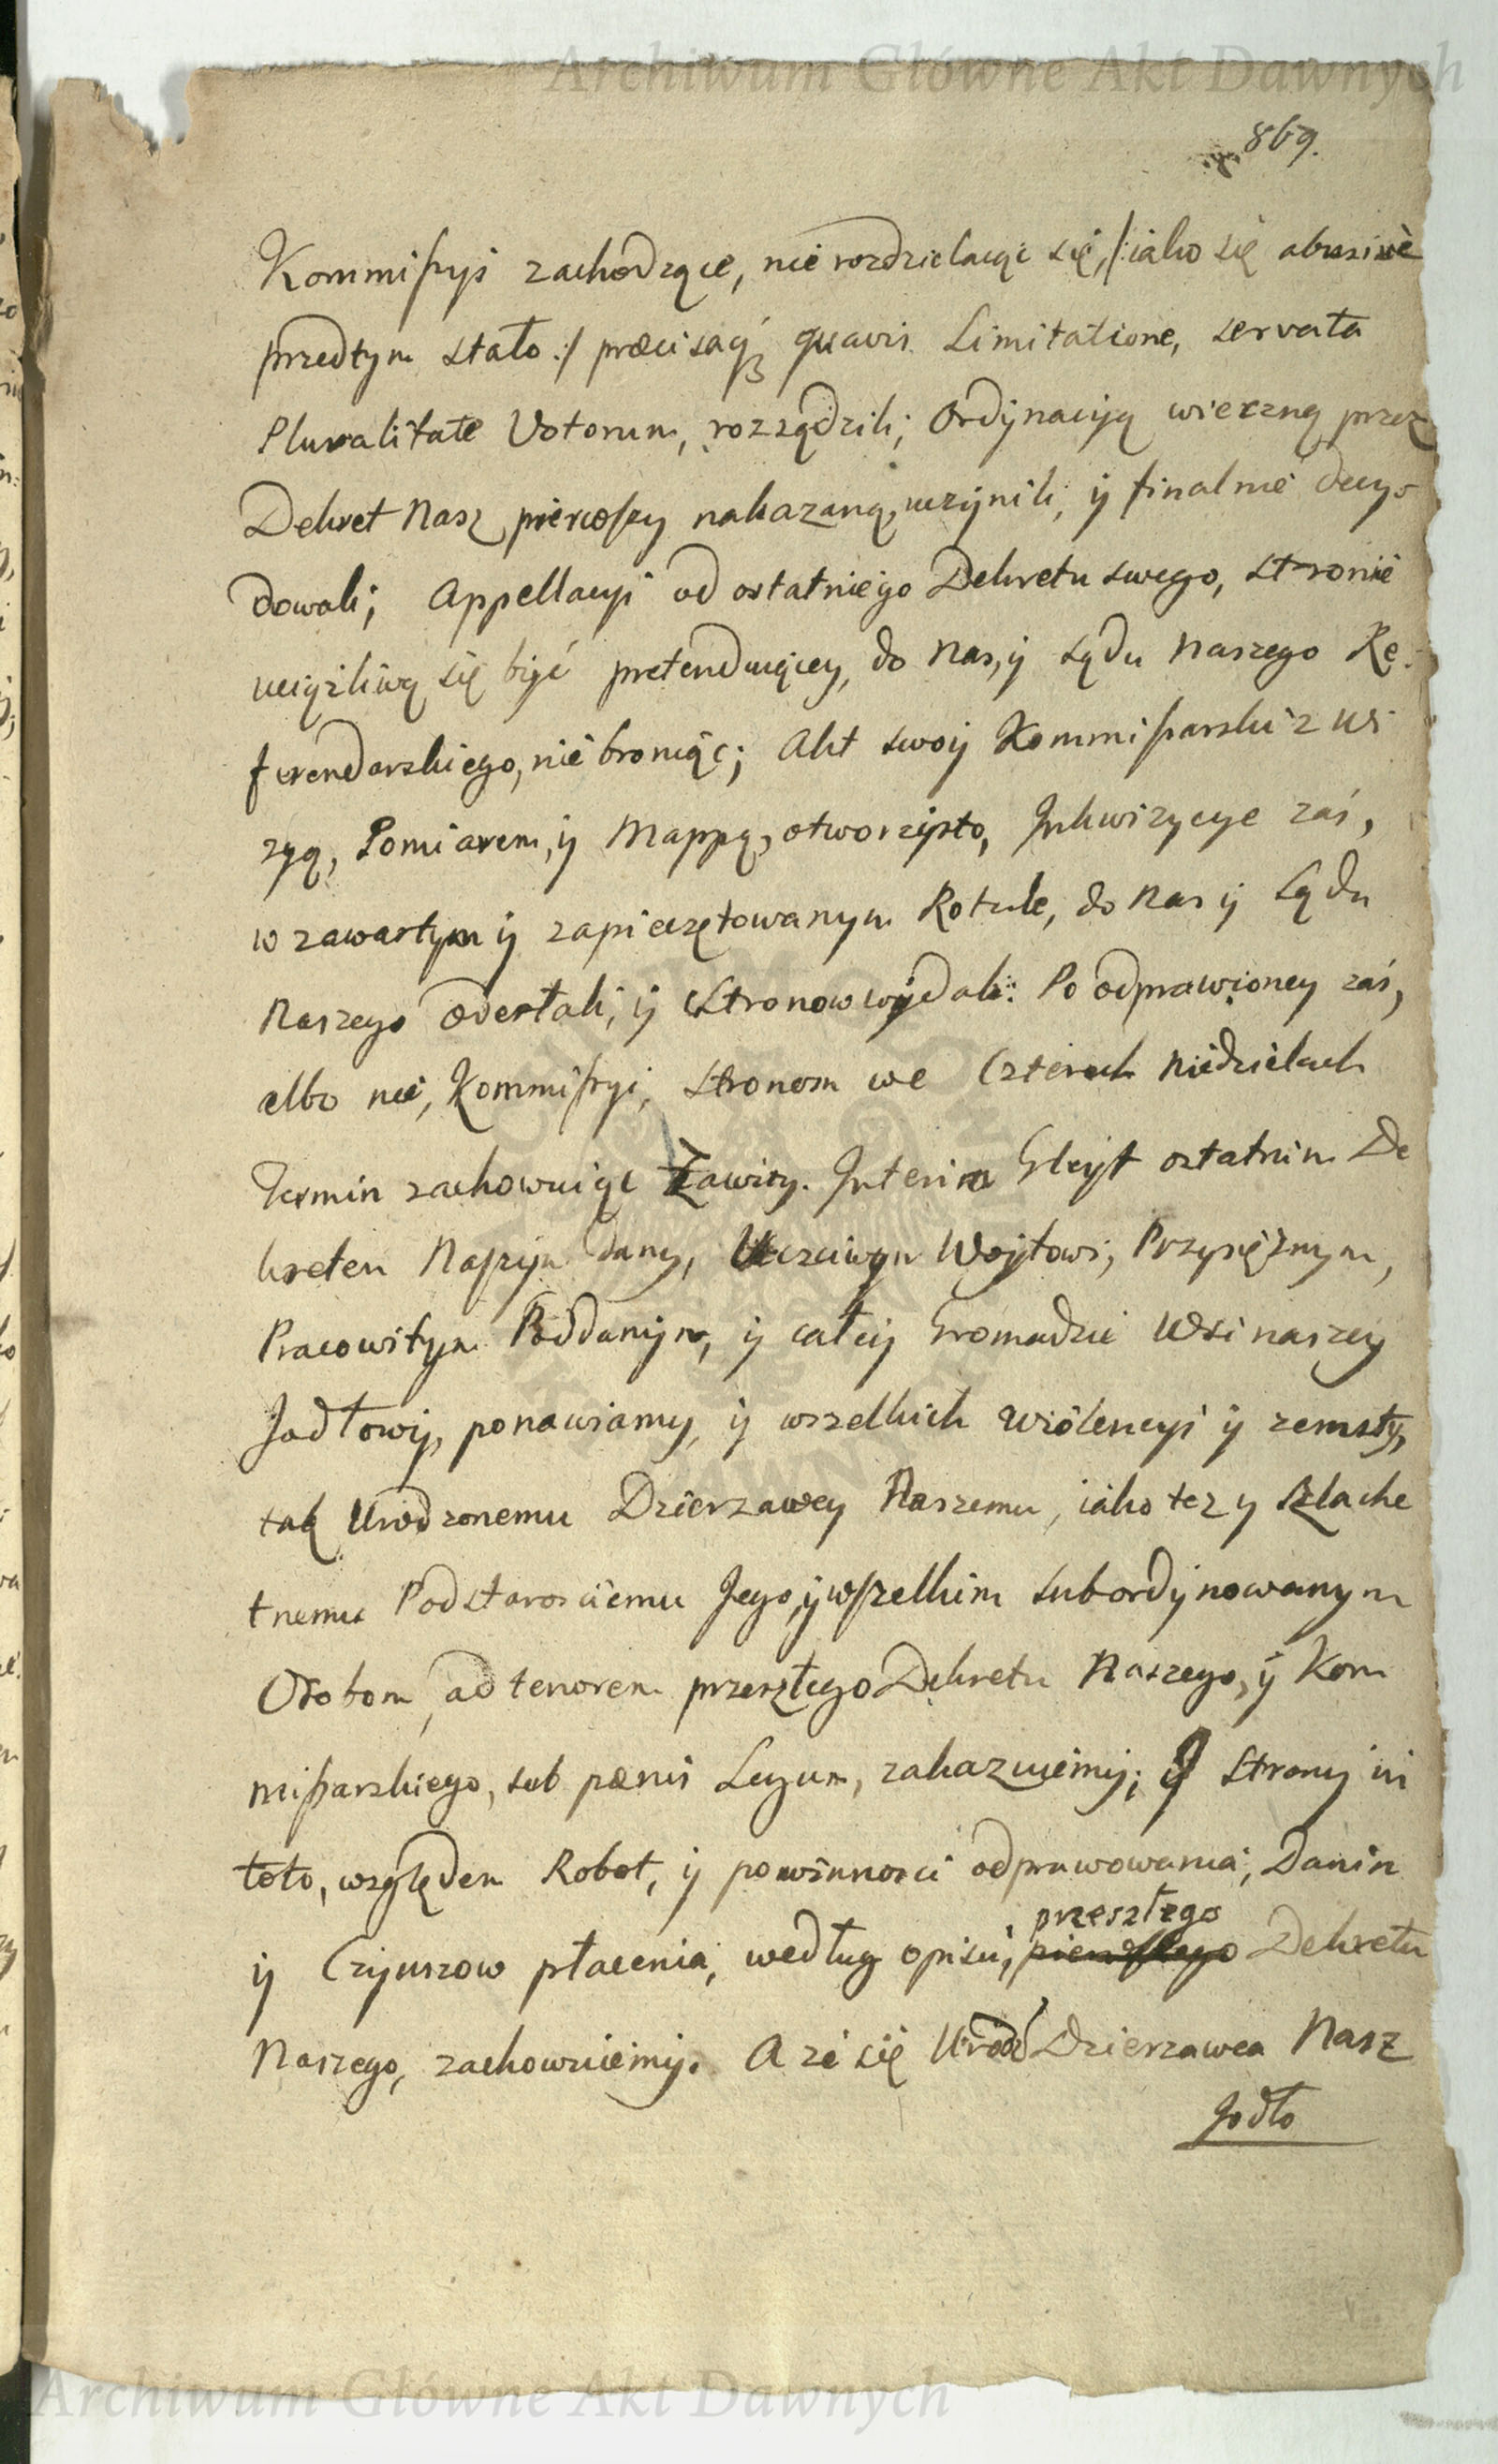 Archiwum Główne Akt Dawnych
869.
Kommissyi zachodzące, nie rozdzielaiąc się, /:iako się abusivè
przedtym stało:/ præcisaq3 quavis Limitatione, servata
Pluralitate Votorum, rozządzili; Ordynacyą wieczną przez
Dekret Nasz pierwszy nakazaną, uczynili, y finalnie decy
dowali; Appellacyi od ostatniego Dekretu swego, stronie
uciążliwą się być pretenduiącey, do Nas, y Sądu Naszego Re:
ferendarskiego, nie broniąc; Akt swoy Kommissarski z wi
zyą, Pomiarem, y Mappą, otworzysto, Inkwizycye zaś,
w zawartym y zapieczętowanym Rotule, do Nas y Sądu
Naszego odesłali, y Stronom wydali. Po odprawioney zaś,
albo nie, Kommissyi, Stronom we Czterech Niedzielach
Termin zachowuiąc Zawity. Interim Gleyt ostatnim De
kretem Naszym dany, Uczciwym Woytowi, Przysiężnym,
Pracowitym Poddanym, y całey Gromadzie Wsi naszey
Jadłowy, ponawiamy, y wszelkich wiolencyi y zemsty,
tak Urodzonemu Dzierzawcy Naszemu, iako tez y Szlache
tnemu Podstarosciemu Jego, y wszelkim subordynowanym
Osobom, ad tenorem przeszłego Dekretu Naszego, y Kom
missarskiego, sub pœnis Legum, zakazuiemy; Y Strony in
toto, względem Robot, y powinnosci odprawowania, Danin
przeszłego
y Czynszow płacenia, według opisu, pierwszego Dekretu
Naszego, zachowuiemy. A ze się Urodz Dzierzawca Nasz
Jodło
Archiwum Główne Akt Dawnych